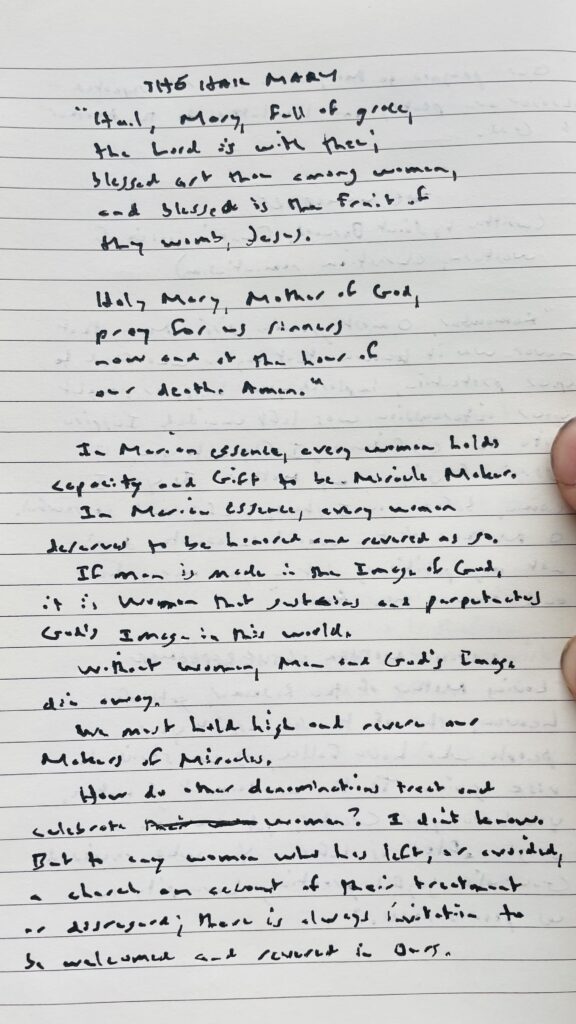 THE HAIL MARY
"Hail, Mary, full of grace,
the Lord is with thee;
blessed art thou among women,
and blessed is the fruit of
thy womb, Jesus.
Holy Mary, Mother of God,
pray for us sinners
now and at the hour of
our death. Amen."
In Marian essence, every woman holds
capacity and Gift to be Miracle Maker.
In Marian essence, every woman
deserves to be honored and revered as so.
If man is made in the Image of God,
it is Woman that sustains and perpetuates
God's Image in this world.
Without woman, Man and God's Image
die away.
We must hold high and revere our
Makers of Miracles.
How do other denominations treat and
celebrate women? I don't know.
But to any woman who has left, or avoided,
a church on account of their treatment
or disregard; there is always invitation to
be welcomed and revered in Ours.